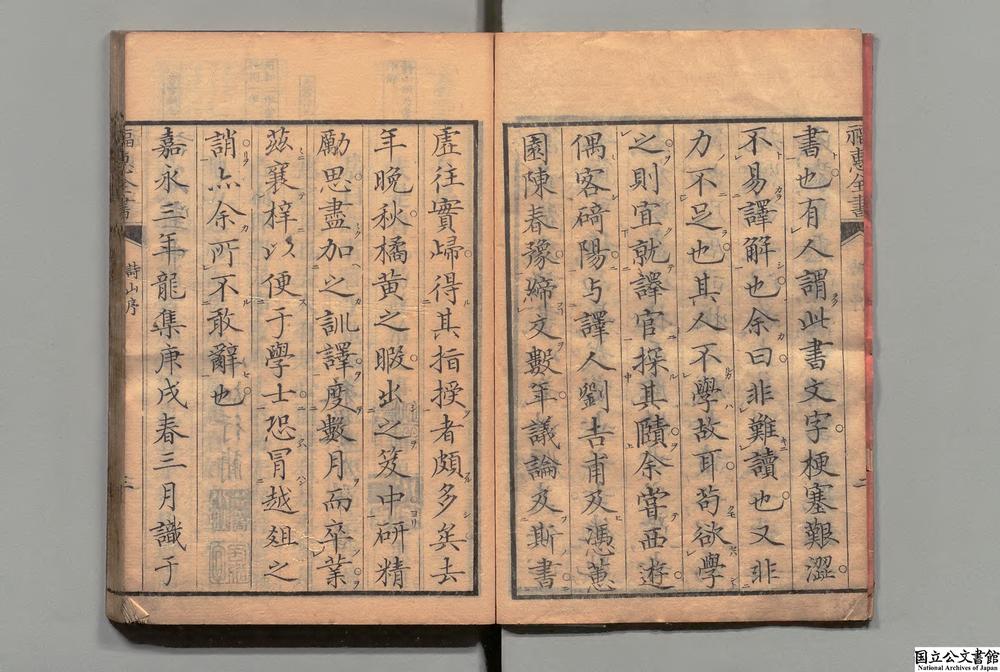 福惠全書
書也有人謂此書文字梗塞艱澀
不易譯解也余曰非難讀也又非
力不足也其人不學故耳苟欲學
之則宜就譯官探其賾余嘗西遊
偶客碕陽与譯人劉吉甫及馮蕙
園陳春豫締文數年議論及斯書
二
虛往實歸得其指授者頗多矣去
年晚秋橘黃之暇出之笈中研精
勵思盡加之訓譯度數月而卒業
茲襄梓以便于學士恐冒越俎之
誚亦余所不敢辭也
嘉永三年龍集庚戌春三月識于
福惠全書
詩山序
三
国立公文書館
National Archives of Japan